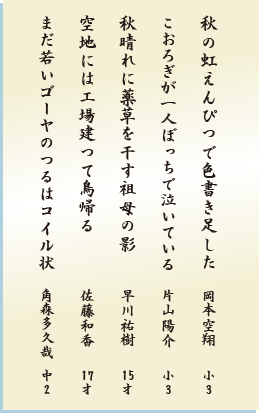 秋の虹えんぴつで色書き足した　岡本空翔　小3
こおろぎが一人ぼっちで泣いている　片山陽介　小3
秋晴れに薬草を干す祖母の影　早川祐樹　15才
空地には工場建つて鳥帰る　佐藤和香　17才
まだ若いゴーヤのつるはコイル状　角森多久哉　中2